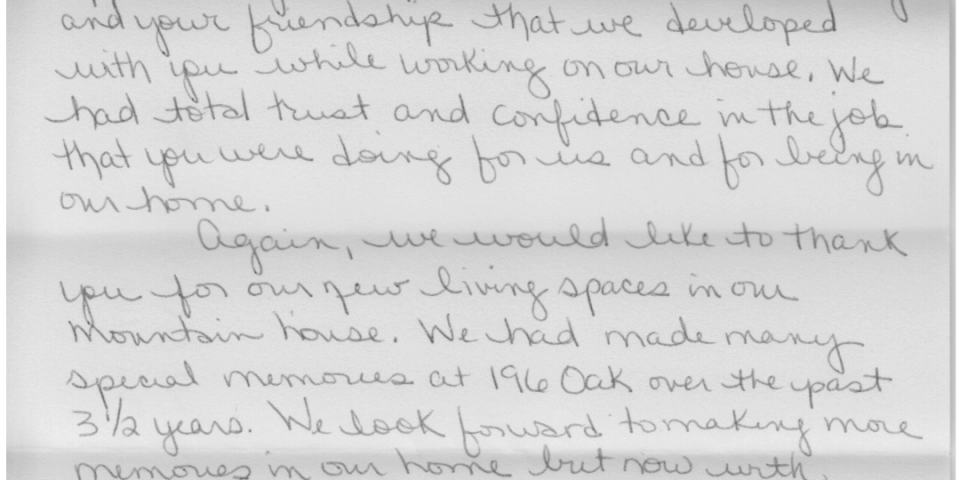 and your friendship that we developed
with you while working on our house. We
had total trust and confidence in the job
that you were doing for us and for being in
our home.
Again, we would like to thank
you for our new living spaces in our
mountain house. We had made many
special memories at 196 Oak over the past
3 1/2 years. We look forward to making more
memories in our home but now with